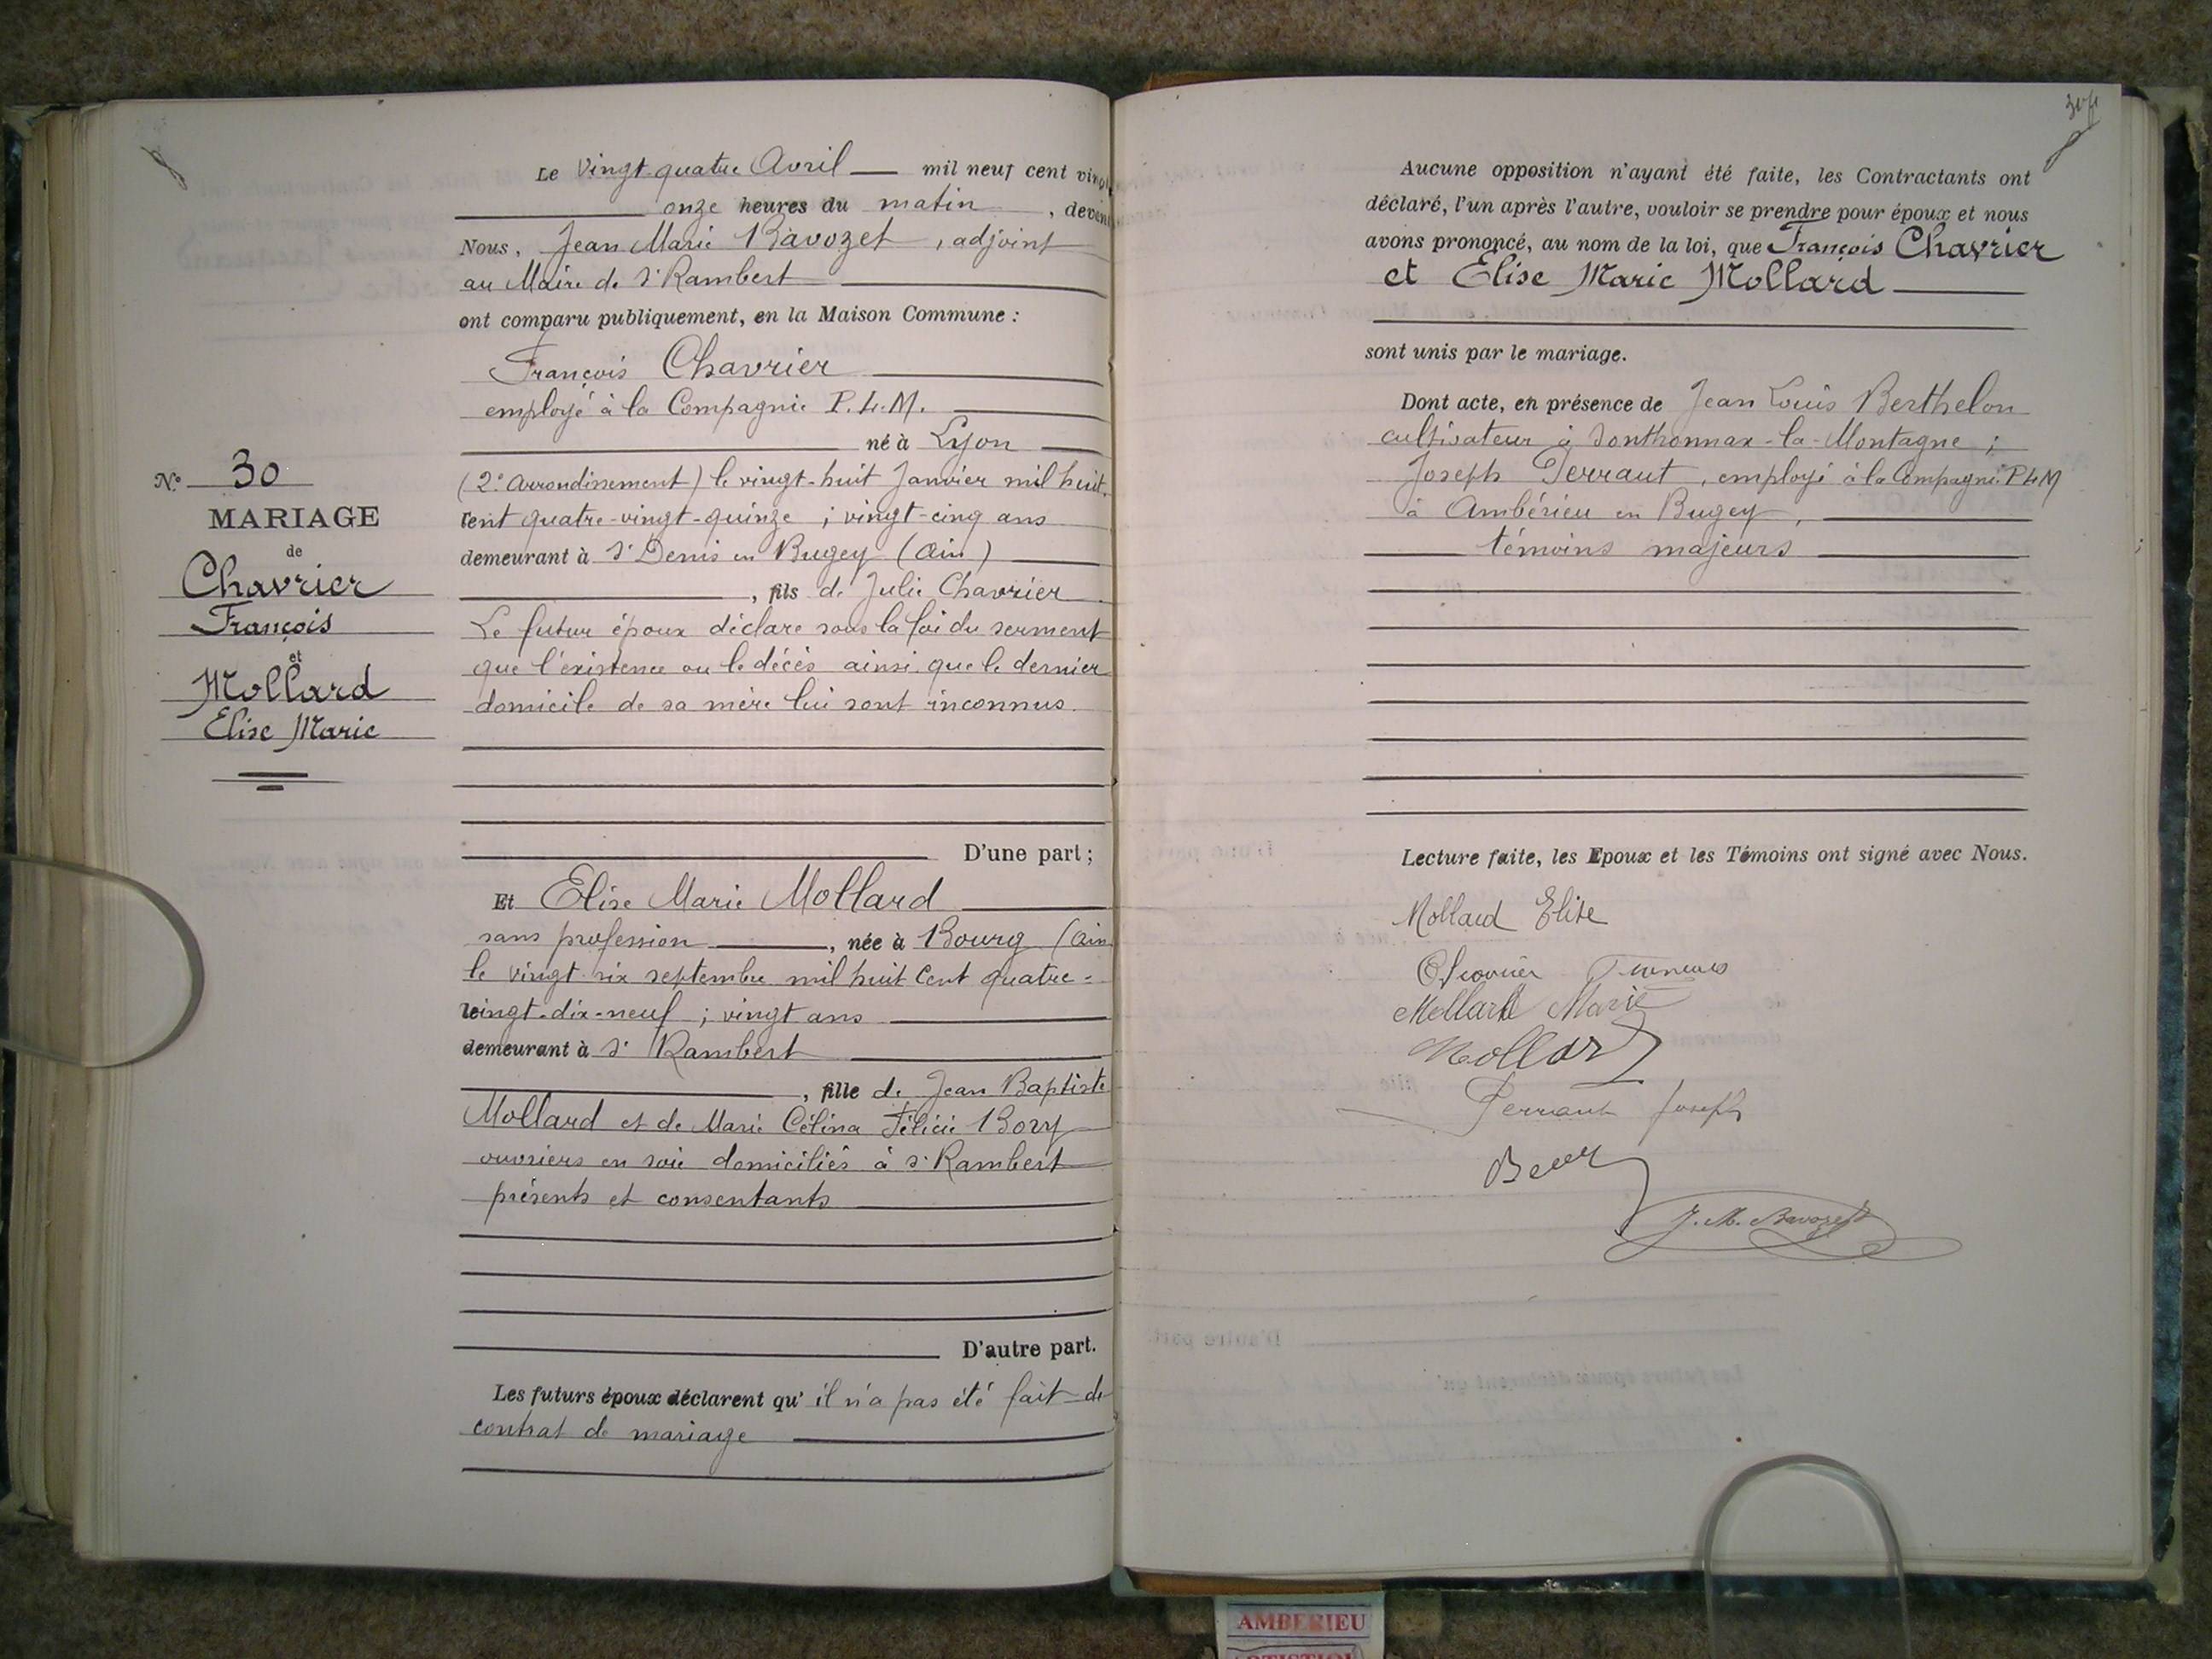 Le Vingt-quatre Avril mil neuf cent vingt
onze heures du matin, devant
Nous, Jean Marie Bavozet, adjoint
au Maire de St Rambert
ont comparu publiquement, en la Maison Commune :
François Chavrier
employé à la Compagnie P.L.M.
né à Lyon
(2e arrondissement) le vingt-huit Janvier mil huit
cent quatre-vingt-quinze ; vingt-cinq ans
demeurant à St Denis en Bugey (Ain)
, fils de Julie Chavrier
Le futur époux déclare sous la foi du serment
que l'existence ou le décès ainsi que le dernier
domicile de sa mère lui sont inconnus.
D'une part ;
Et Elise Marie Mollard
sans profession, née à Bourg (Ain
le vingt-six septembre mil huit cent quatre=
vingt-dix-neuf ; vingt ans
demeurant à St Rambert
, fille de Jean Baptiste
Mollard et de Marie Célina Félicie Bozy
ouvriers en soie domiciliés à St Rambert
présents et consentants
D'autre part.
Les futurs époux déclarent qu'il n'a pas été fait de
contrat de mariage
No 30
MARIAGE
de
Chavrier
François
et
Mollard
Elise Marie
Aucune opposition n'ayant été faite, les Contractants ont
déclaré, l'un après l'autre, vouloir se prendre pour époux et nous
avons prononcé, au nom de la loi, que François Chavrier
et Elise Marie Mollard
sont unis par le mariage.
Dont acte, en présence de Jean Louis Berthelon
cultivateur à Sonthonnax-la-Montagne ;
Joseph Perraut, employé à la Compagnie PLM
à Ambérieu en Bugey,
témoins majeurs
Lecture faite, les Epoux et les Témoins ont signé avec Nous.
Mollard Elise
Chavrier François
Mollard Marie
Mollard
Perraut Joseph
J. M. Bavozet
AMBERIEU